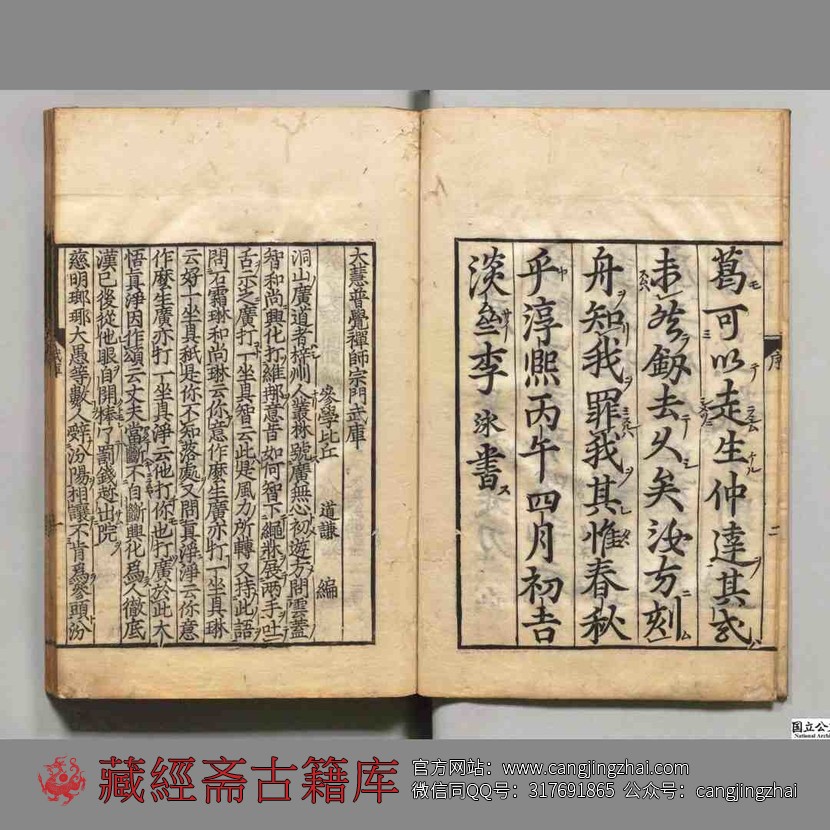 序
二
葛可以走生仲達其或
去久矣汝方刻
舟知我罪我其惟春秋
乎淳熈丙午四月初吉
李泳書
大慧普覺禪師宗門武庫
參學比丘 道謙 編
洞山廣道者梓州人叢林號廣無心初遊方問雲蓋
智和尚興化打維那意旨如何智下繩牀展兩手吐
舌示之廣打一坐具智云此是風力所轉又持此語
問石霜琳和尚琳云你意作麼生廣亦打一坐具琳
云好一坐具秖是你不知落處又問真淨淨云你意
作麼生廣亦打一坐具淨云他打你也打廣於此大
悟真淨因作頌云丈夫當斷不自斷興化為人徹底
漢已後從他眼自開棒了罰錢趂出院
慈明瑯瑘大愚等數人辭汾陽相讓不肯為參頭汾
武庫
一
国立公文
National Archi
藏經斋古籍库
官方网站：www.cangjingzhai.com
微信同QQ号：317691865 公众号：cangjingzhai